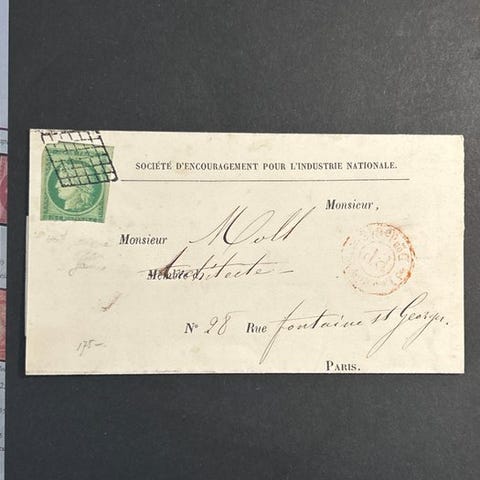 SOCIÉTÉ D'ENCOURAGEMENT POUR L'INDUSTRIE NATIONALE.
Monsieur,
Monsieur Molt
Membre d
Architecte
N° 28 Rue fontaine st Georges.
PARIS.
175-